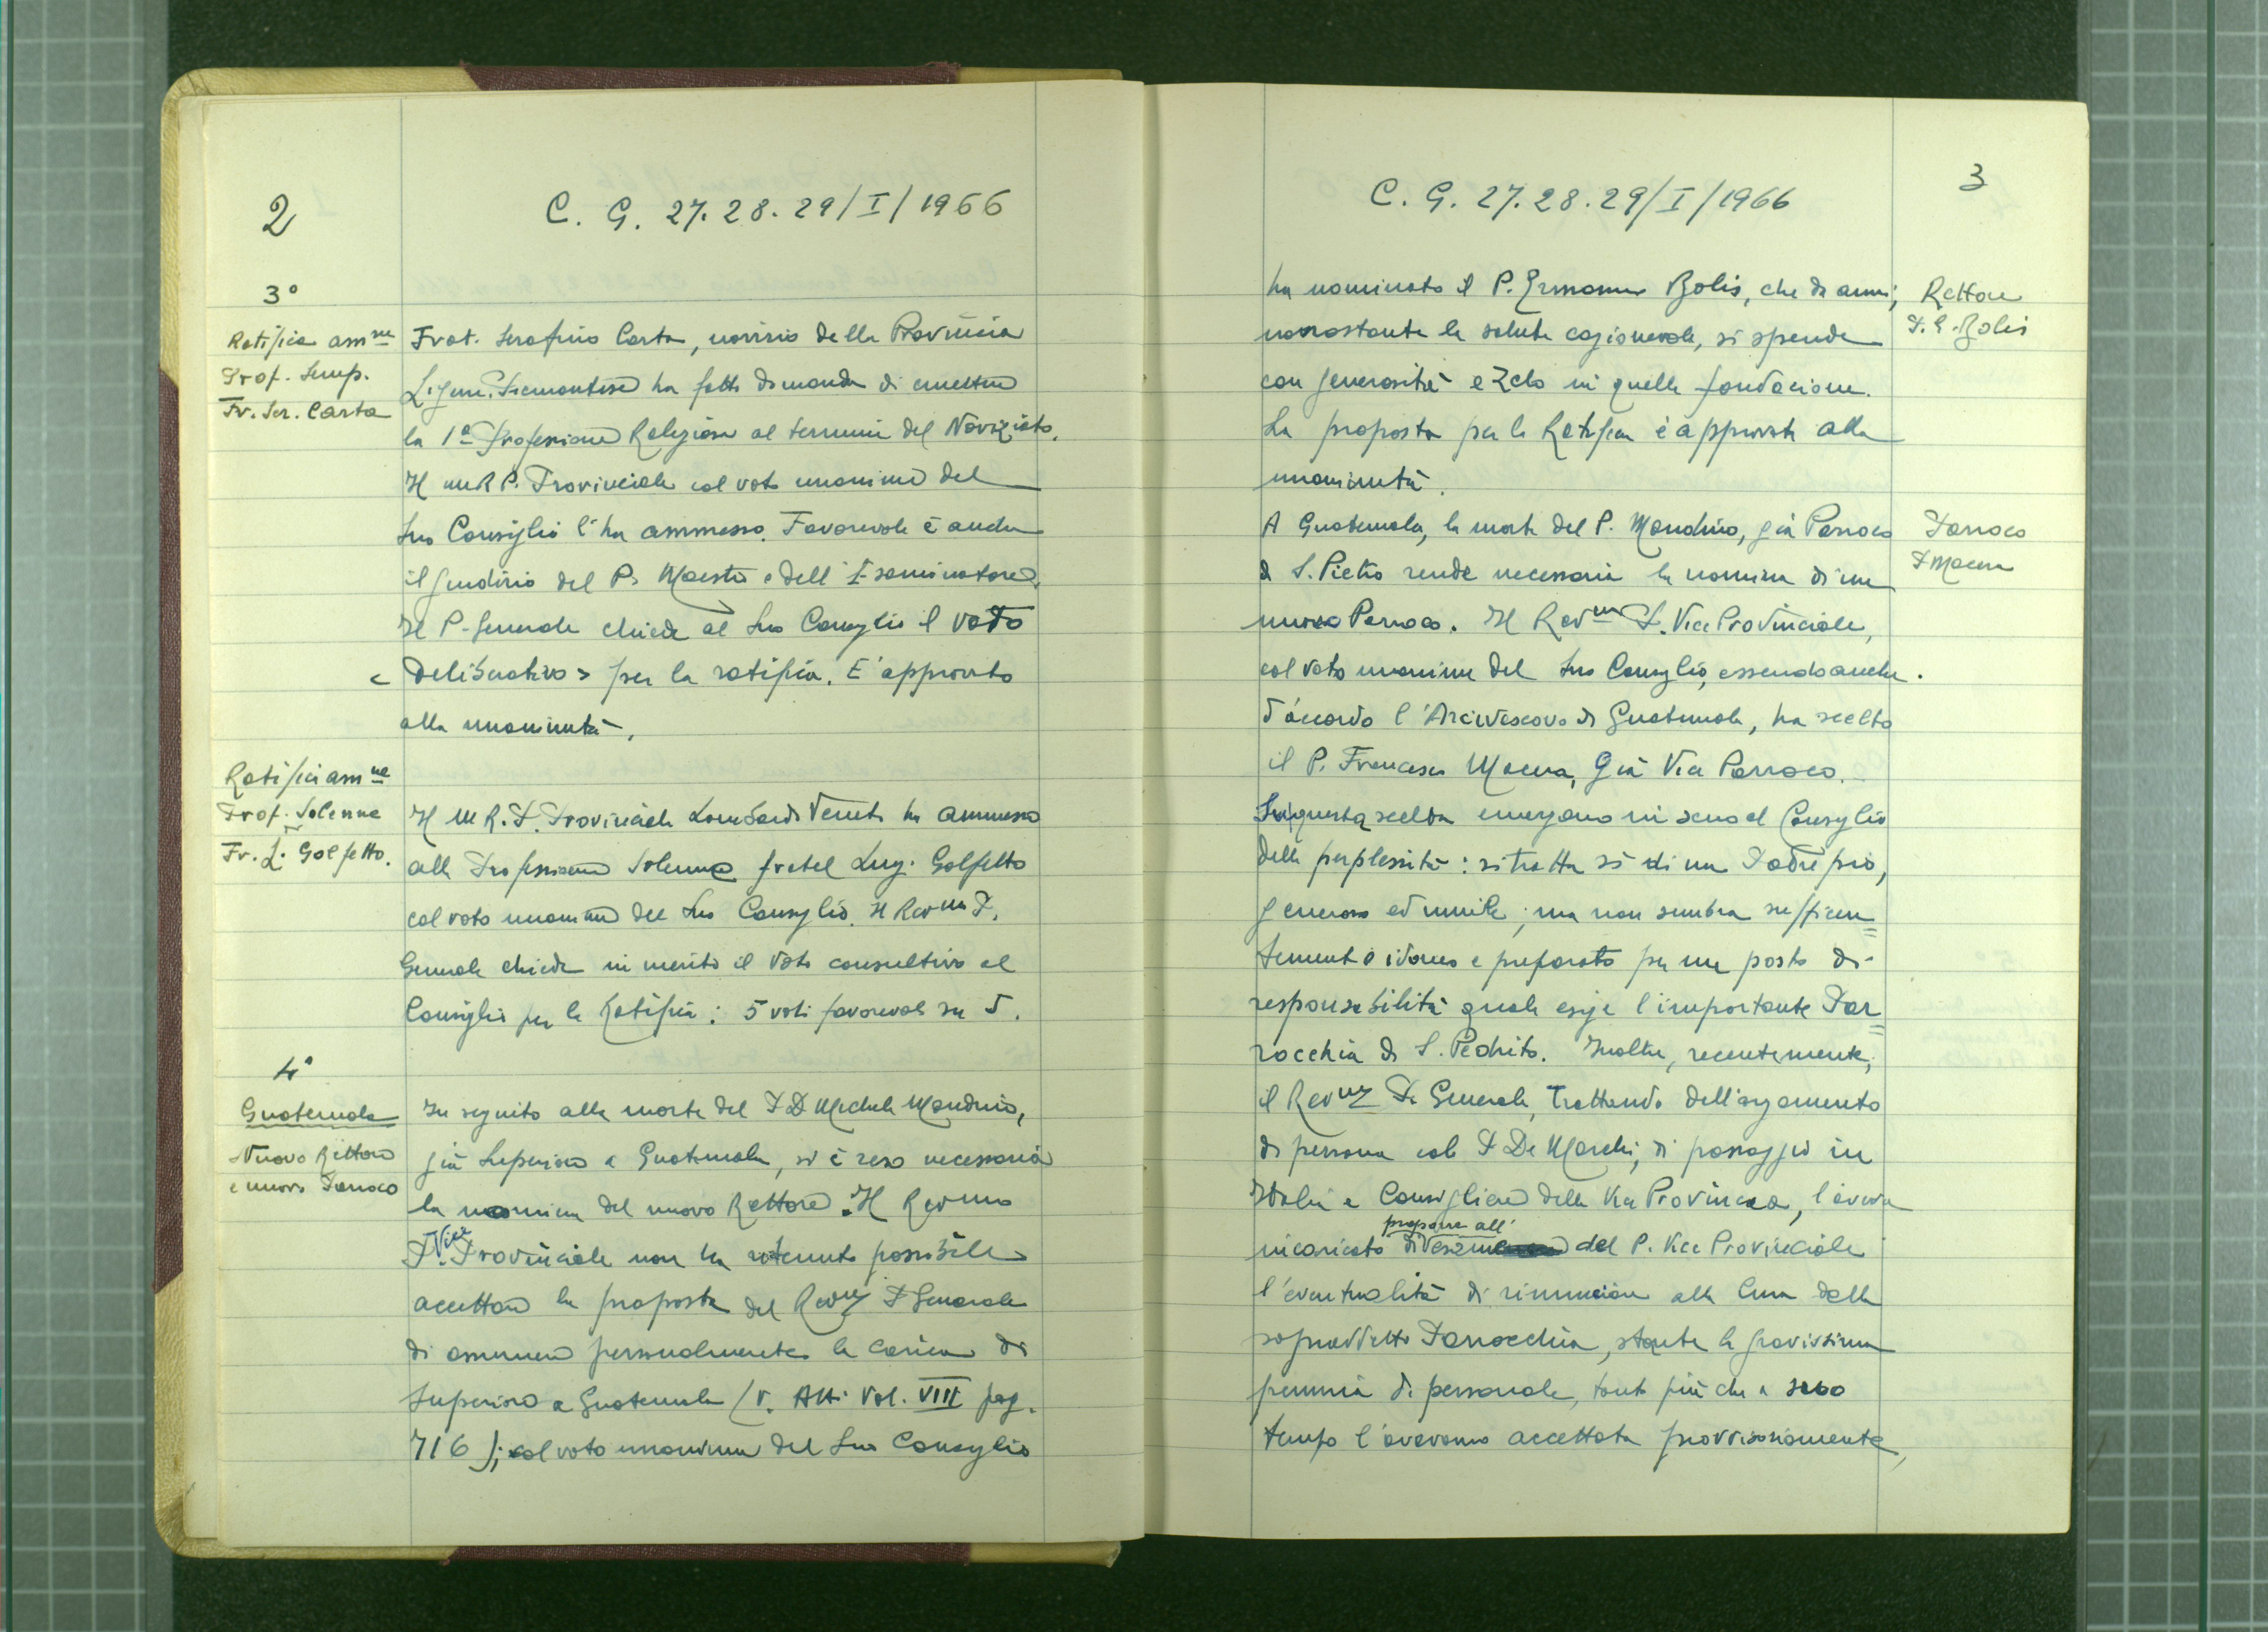 2
C. G. 27. 28. 29/I/1966
3°
Ratifica amne
Prof. Semp.
Fr. Ser. Carta
Frat. Serafino Carta, novizio della Provincia
Ligure-Piemontese ha fatto domanda di emettere
la 1ª Professione Religiosa al termine del Noviziato.
Il M R P. Provinciale col voto unanime del
Suo Consiglio l'ha ammesso. Favorevole è anche
il giudizio del P. Maestro e dell'Esaminatore.
Il P. Generale chiede al Suo Consiglio il voto
< Deliberativo > per la ratifica. E' approvato
alla unanimità.
Ratifica amne
Prof. Solenne
Fr. L. Golfetto.
Il M R. P. Provinciale Lombardo Veneto ha ammesso
alla Professione Solenne fratel Luigi Golfetto
col voto unanime del Suo Consiglio. Il Revmo P.
Generale chiede in merito il voto consultivo al
Consiglio per la Ratifica: 5 voti favorevoli su 5.
4°
Guatemala
Nuovo Rettore
e nuovo Parroco
In seguito alla morte del P D Michele Mondino,
già Superiore a Guatemala, si è resa necessaria
la nomina del nuovo Rettore. Il Revmo
P. Vice Provinciale non ha ritenuto possibile
accettare la proposta del Revmo P Generale
di assumere personalmente la carica di
Superiore a Guatemala (V. Atti Vol. VIII pag.
716); col voto unanime del Suo Consiglio
3
C. G. 27. 28. 29/I/1966
ha nominato il P. Ermanno Bolis, che da anni,
nonostante la salute cagionevole, si spende
con generosità e zelo in quella fondazione.
La proposta per la Ratifica è approvata alla
unanimità.
Rettore
P. E. Bolis
A Guatemala, la morte del P. Mondino, già Parroco
di S. Pietro rende necessaria la nomina di un
nuovo Parroco. Il Revmo P. Vice Provinciale,
col voto unanime del Suo Consiglio, essendo anche
d'accordo l'Arcivescovo di Guatemala, ha scelto
il P. Francesco Macera, già Vice Parroco.
Parroco
P Macera
Su questa scelta emergono in seno al Consiglio
delle perplessità: si tratta sì di un Padre pio,
generoso ed umile; ma non sembra sufficien=
temente idoneo e preparato per un posto di
responsabilità quale esige l'importante Par=
rocchia di S. Pedrito. Inoltre, recentemente,
il Revmo P. Generale, trattando dell'argomento
di persona col P De Marchi, di passaggio in
Italia e Consigliere della Vice Provincia, l'aveva
incaricato di proporre all'esame del P. Vice Provinciale
l'eventualità di rinunciare alla Cura della
sopraddetta Parrocchia, stante la gravissima
penuria di personale, tanto più che a suo
tempo l'avevamo accettata provvisoriamente,